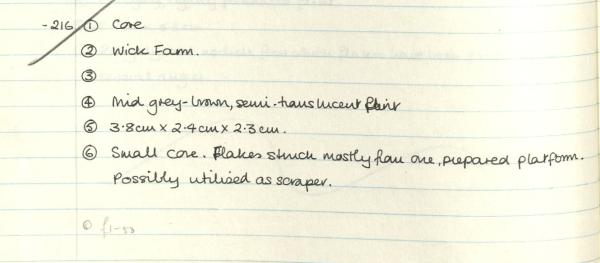 -216 ① Core
② Wick Farm.
③
④ Mid grey-brown, semi-translucent flint
⑤ 3.8cm x 2.4cm x 2.3cm.
⑥ Small core. Flakes struck mostly from one, prepared platform.
Possibly utilised as scraper.